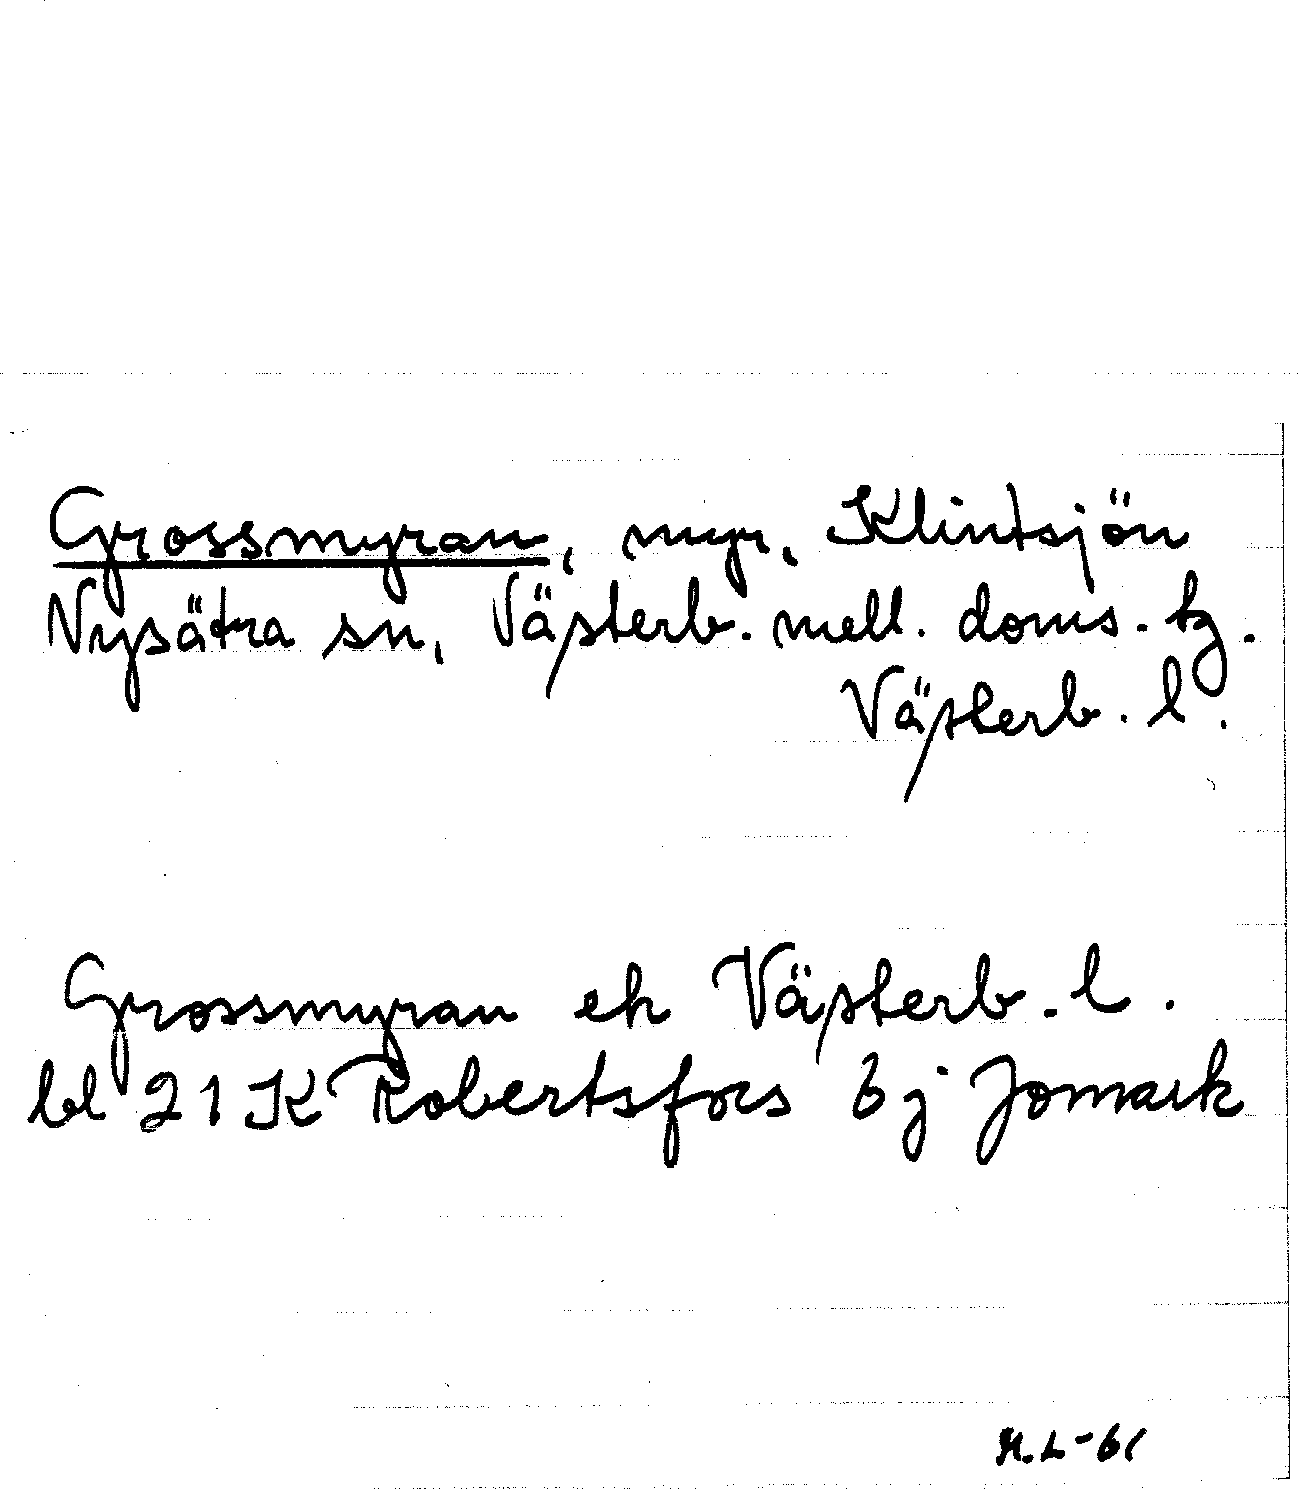 Grossmyran, myr, Klintsjön
Nysätra sn, Västerb. mell. doms. tg.
Västerb. l.
Grossmyran ek Västerb. l.
bl 21 K Robertsfors 6 j Jomark
H.L-61